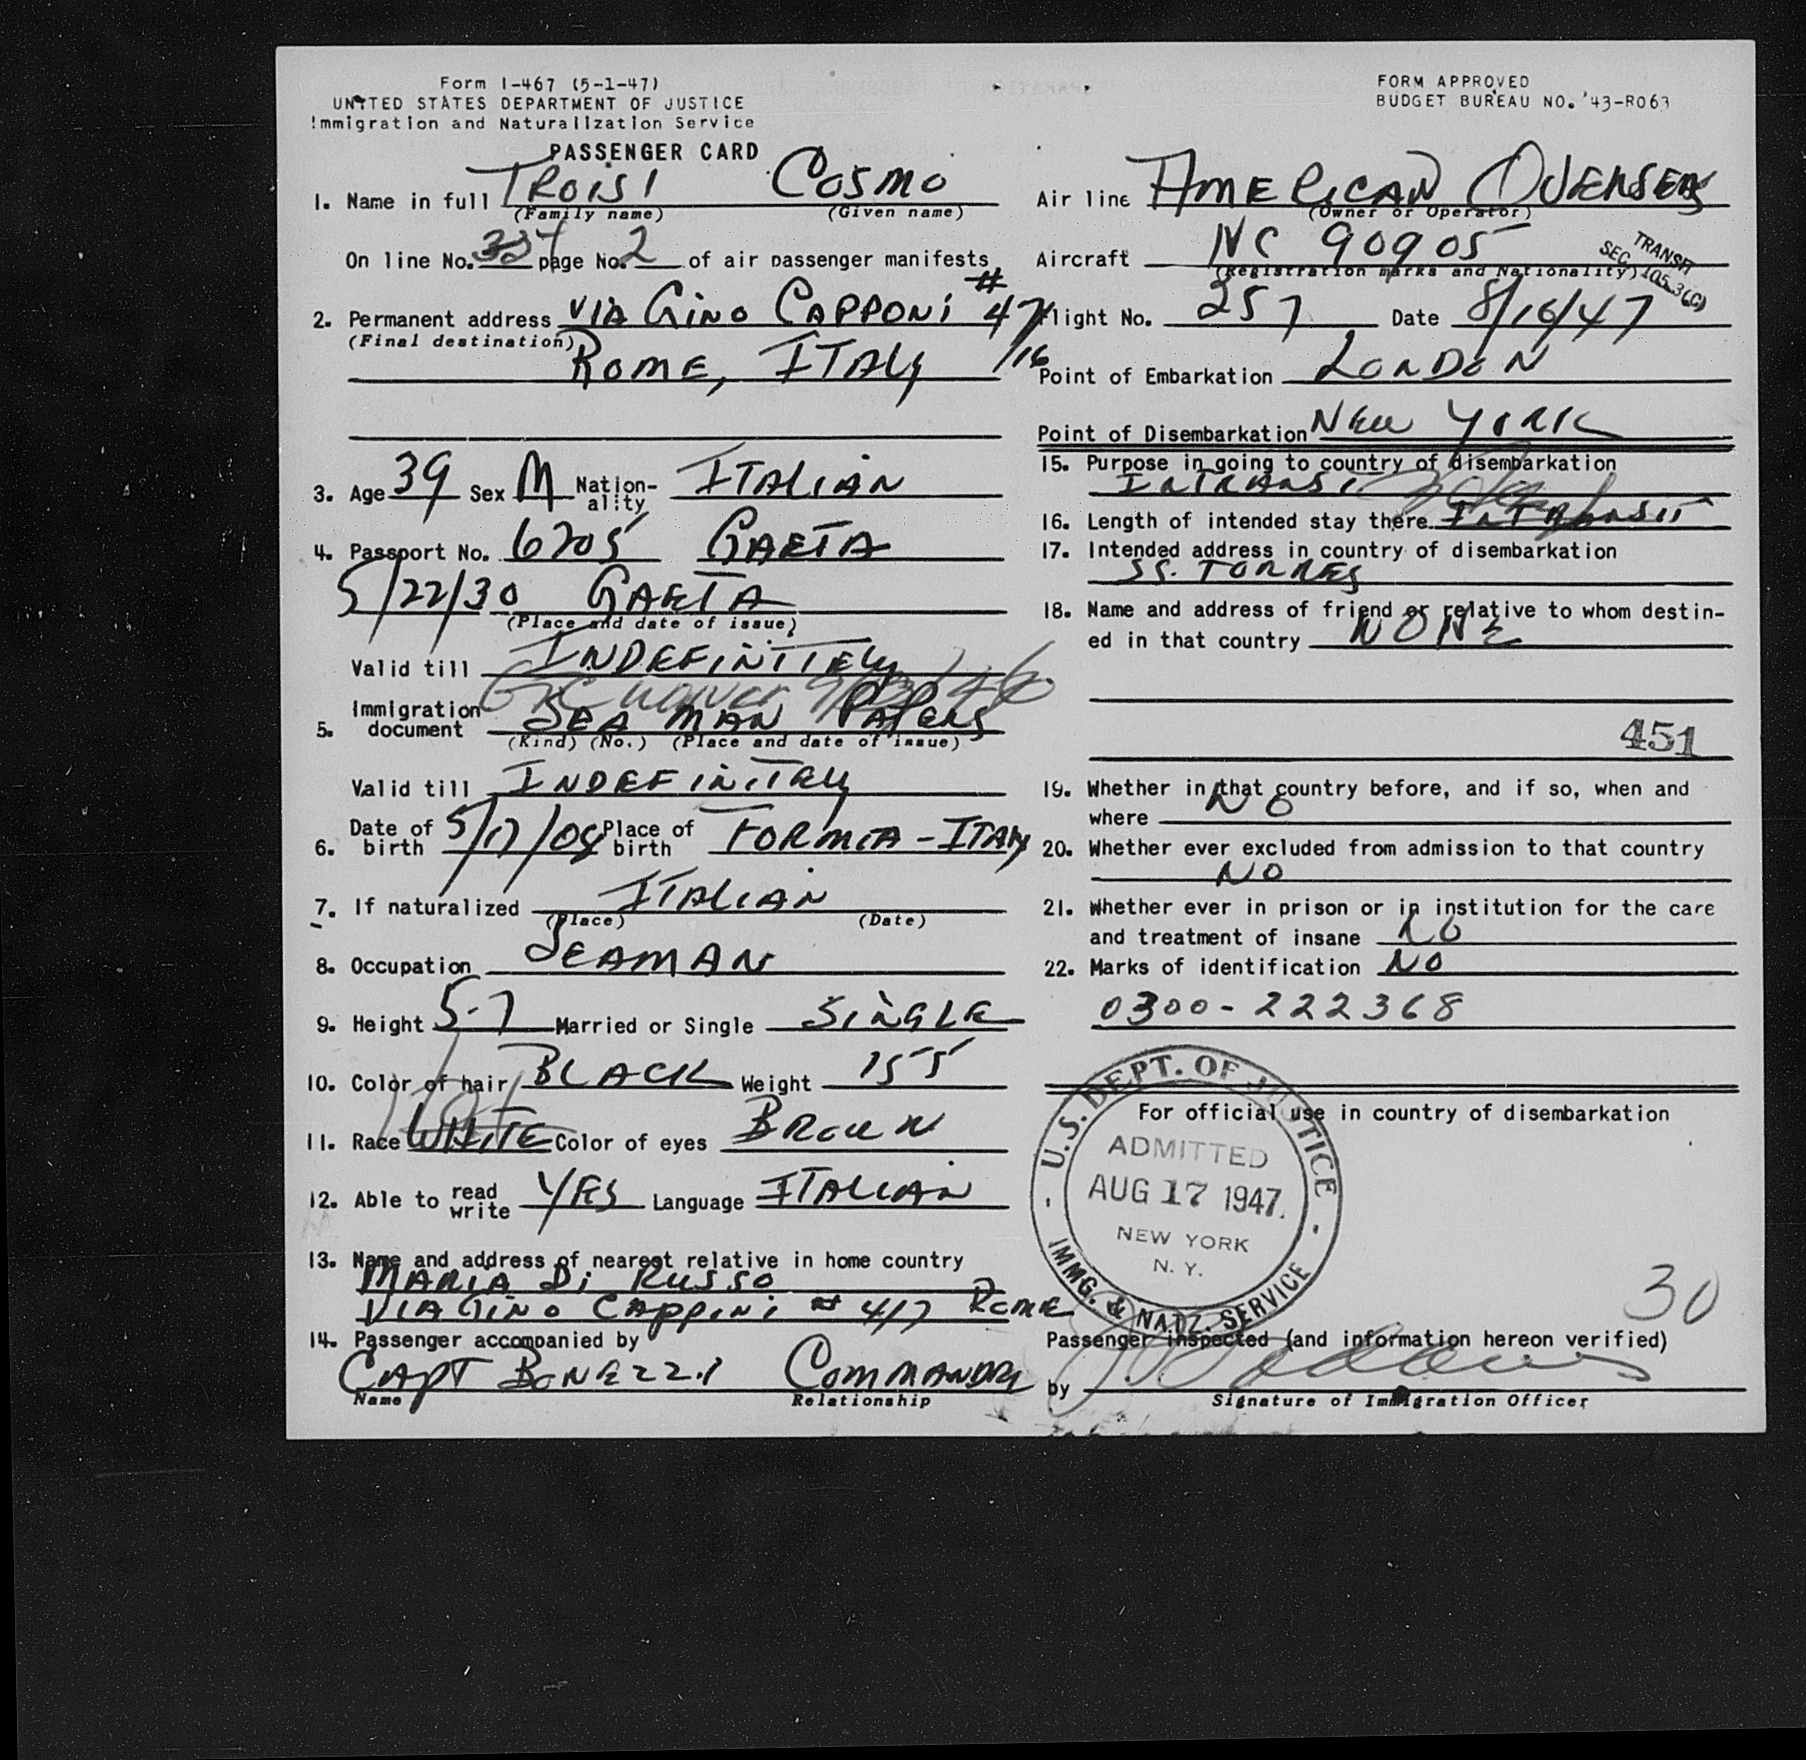 Form I-467 (5-1-47)
UNITED STATES DEPARTMENT OF JUSTICE
Immigration and Naturalization Service
PASSENGER CARD
1. Name in full TROISI COSMO
(Family name) (Given name)
On line No. page No. 2 of air passenger manifests
2. Permanent address VIA GINO CAPPONI # 47
(Final destination) ROME, ITALY /16
3. Age 39 Sex M Nation-ality ITALIAN
4. Passport No. 6205 GAETA
5/22/30 GAETA
(Place and date of issue)
Valid till INDEFINITELY
5. Immigration document SEA MAN PAPERS
(Kind) (No.) (Place and date of issue)
Valid till INDEFINITELY
6. Date of birth 5/17/08 Place of birth FORMIA - ITALY
7. If naturalized ITALIAN
(Place) (Date)
8. Occupation SEAMAN
9. Height 5-7 Married or Single SINGLE
10. Color of hair BLACK Weight 155
11. Race WHITE Color of eyes BROWN
12. Able to read write YES Language ITALIAN
13. Name and address of nearest relative in home country
MARIA Di RUSSO
VIA GINO CAPPINI # 47 ROME
14. Passenger accompanied by
CAPT BONEZZI COMMANDR
Name Relationship
FORM APPROVED
BUDGET BUREAU NO. 43-R063
Air line AMERICAN OVERSEAS
(Owner or Operator)
Aircraft NC 90905
(Registration marks and Nationality)
TRANSIT
SEC. 105.3(C)
Flight No. 257 Date 8/16/47
Point of Embarkation LONDON
Point of Disembarkation NEW YORK
15. Purpose in going to country of disembarkation
INTRANSIT
16. Length of intended stay there INTRANSIT
17. Intended address in country of disembarkation
SS. TORRES
18. Name and address of friend or relative to whom destin-
ed in that country NONE
451
19. Whether in that country before, and if so, when and
where NO
20. Whether ever excluded from admission to that country
NO
21. Whether ever in prison or in institution for the care
and treatment of insane NO
22. Marks of identification NO
0300-222368
For official use in country of disembarkation
U.S. DEPT. OF JUSTICE
ADMITTED
AUG 17 1947
NEW YORK
N. Y.
IMMG. & NATZ. SERVICE
30
Passenger inspected (and information hereon verified)
by
Signature of Immigration Officer